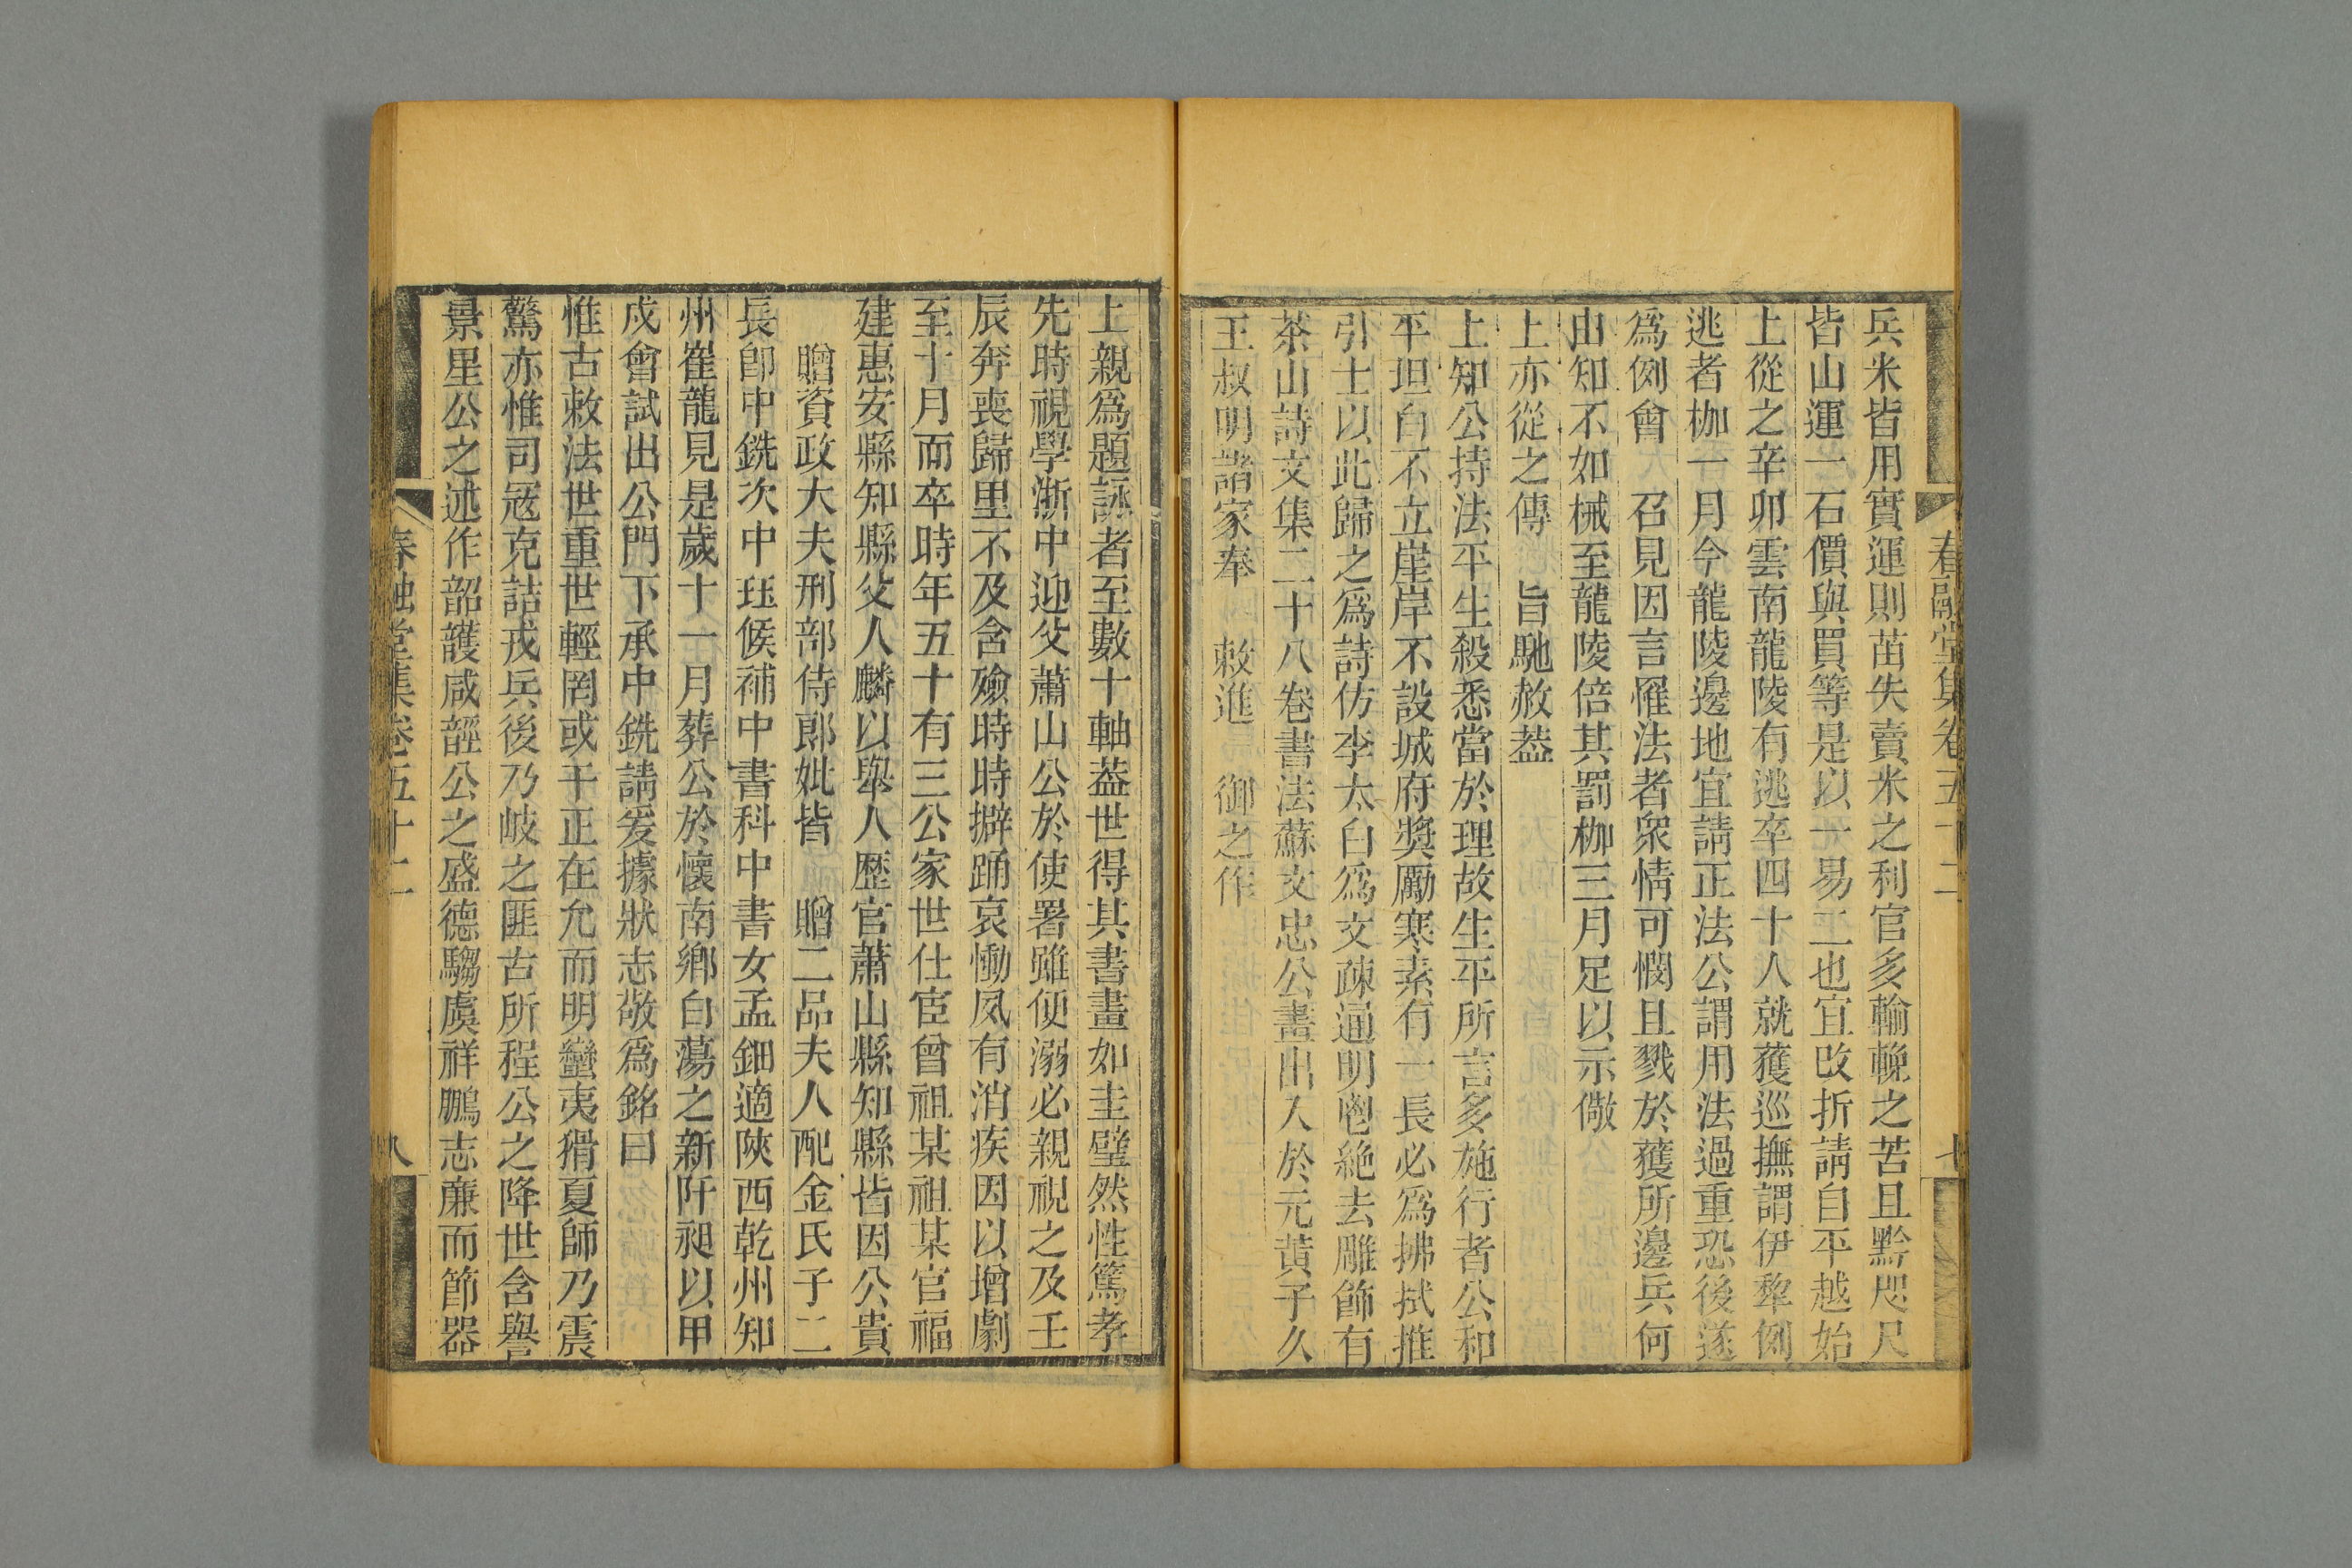 春融堂集卷五十二
兵米皆用實運則苗失賣米之利官多輸輓之苦且黔咫尺
皆山運一石價與買等是以一易二也宜改折請自平越始
上從之辛卯雲南龍陵有逃卒四十八就獲巡撫謂伊犂例
逃者枷一月今龍陵邊地宜請正法公謂用法過重恐後遂
爲例會　召見因言罹法者衆情可憫且戮於獲所邊兵何
由知不如械至龍陵倍其罰枷三月足以示儆
上亦從之傳　旨馳赦葢
上知公持法平生殺悉當於理故生平所言多施行者公和
平坦白不立崖岸不設城府奬勵寒素有一長必爲拂拭推
引士以此歸之爲詩仿李太白爲文疎通明鬯絶去雕飾有
茶山詩文集二十八卷書法蘇文忠公畫出入於元黄子久
王叔明諸家奉　敕進　御之作
上親爲題詠者至數十軸葢世得其書畫如圭璧然性篤孝
先時視學浙中迎父蕭山公於使署雖便溺必親視之及壬
辰奔喪歸里不及含殮時時擗踊哀慟夙有消疾因以增劇
至十月而卒時年五十有三公家世仕宦曾祖某祖某官福
建惠安縣知縣父人麟以舉人歷官蕭山縣知縣皆因公貴
贈資政大夫刑部侍郎妣皆　贈二品夫人配金氏子二
長卽中銑次中珏候補中書科中書女孟鈿適陝西乾州知
州崔龍見是歲十一月葬公於懷南鄉白蕩之新阡昶以甲
戌會試出公門下承中銑請爰據狀志敬爲銘曰
惟古敕法世重世輕罔或干正在允而明蠻夷猾夏師乃震
驚亦惟司寇克詰戎兵後乃岐之匪古所程公之降世含譽
景星公之述作韶護咸䪫公之盛德騶虞祥鵬志廉而節器
春融堂集卷五十二
八